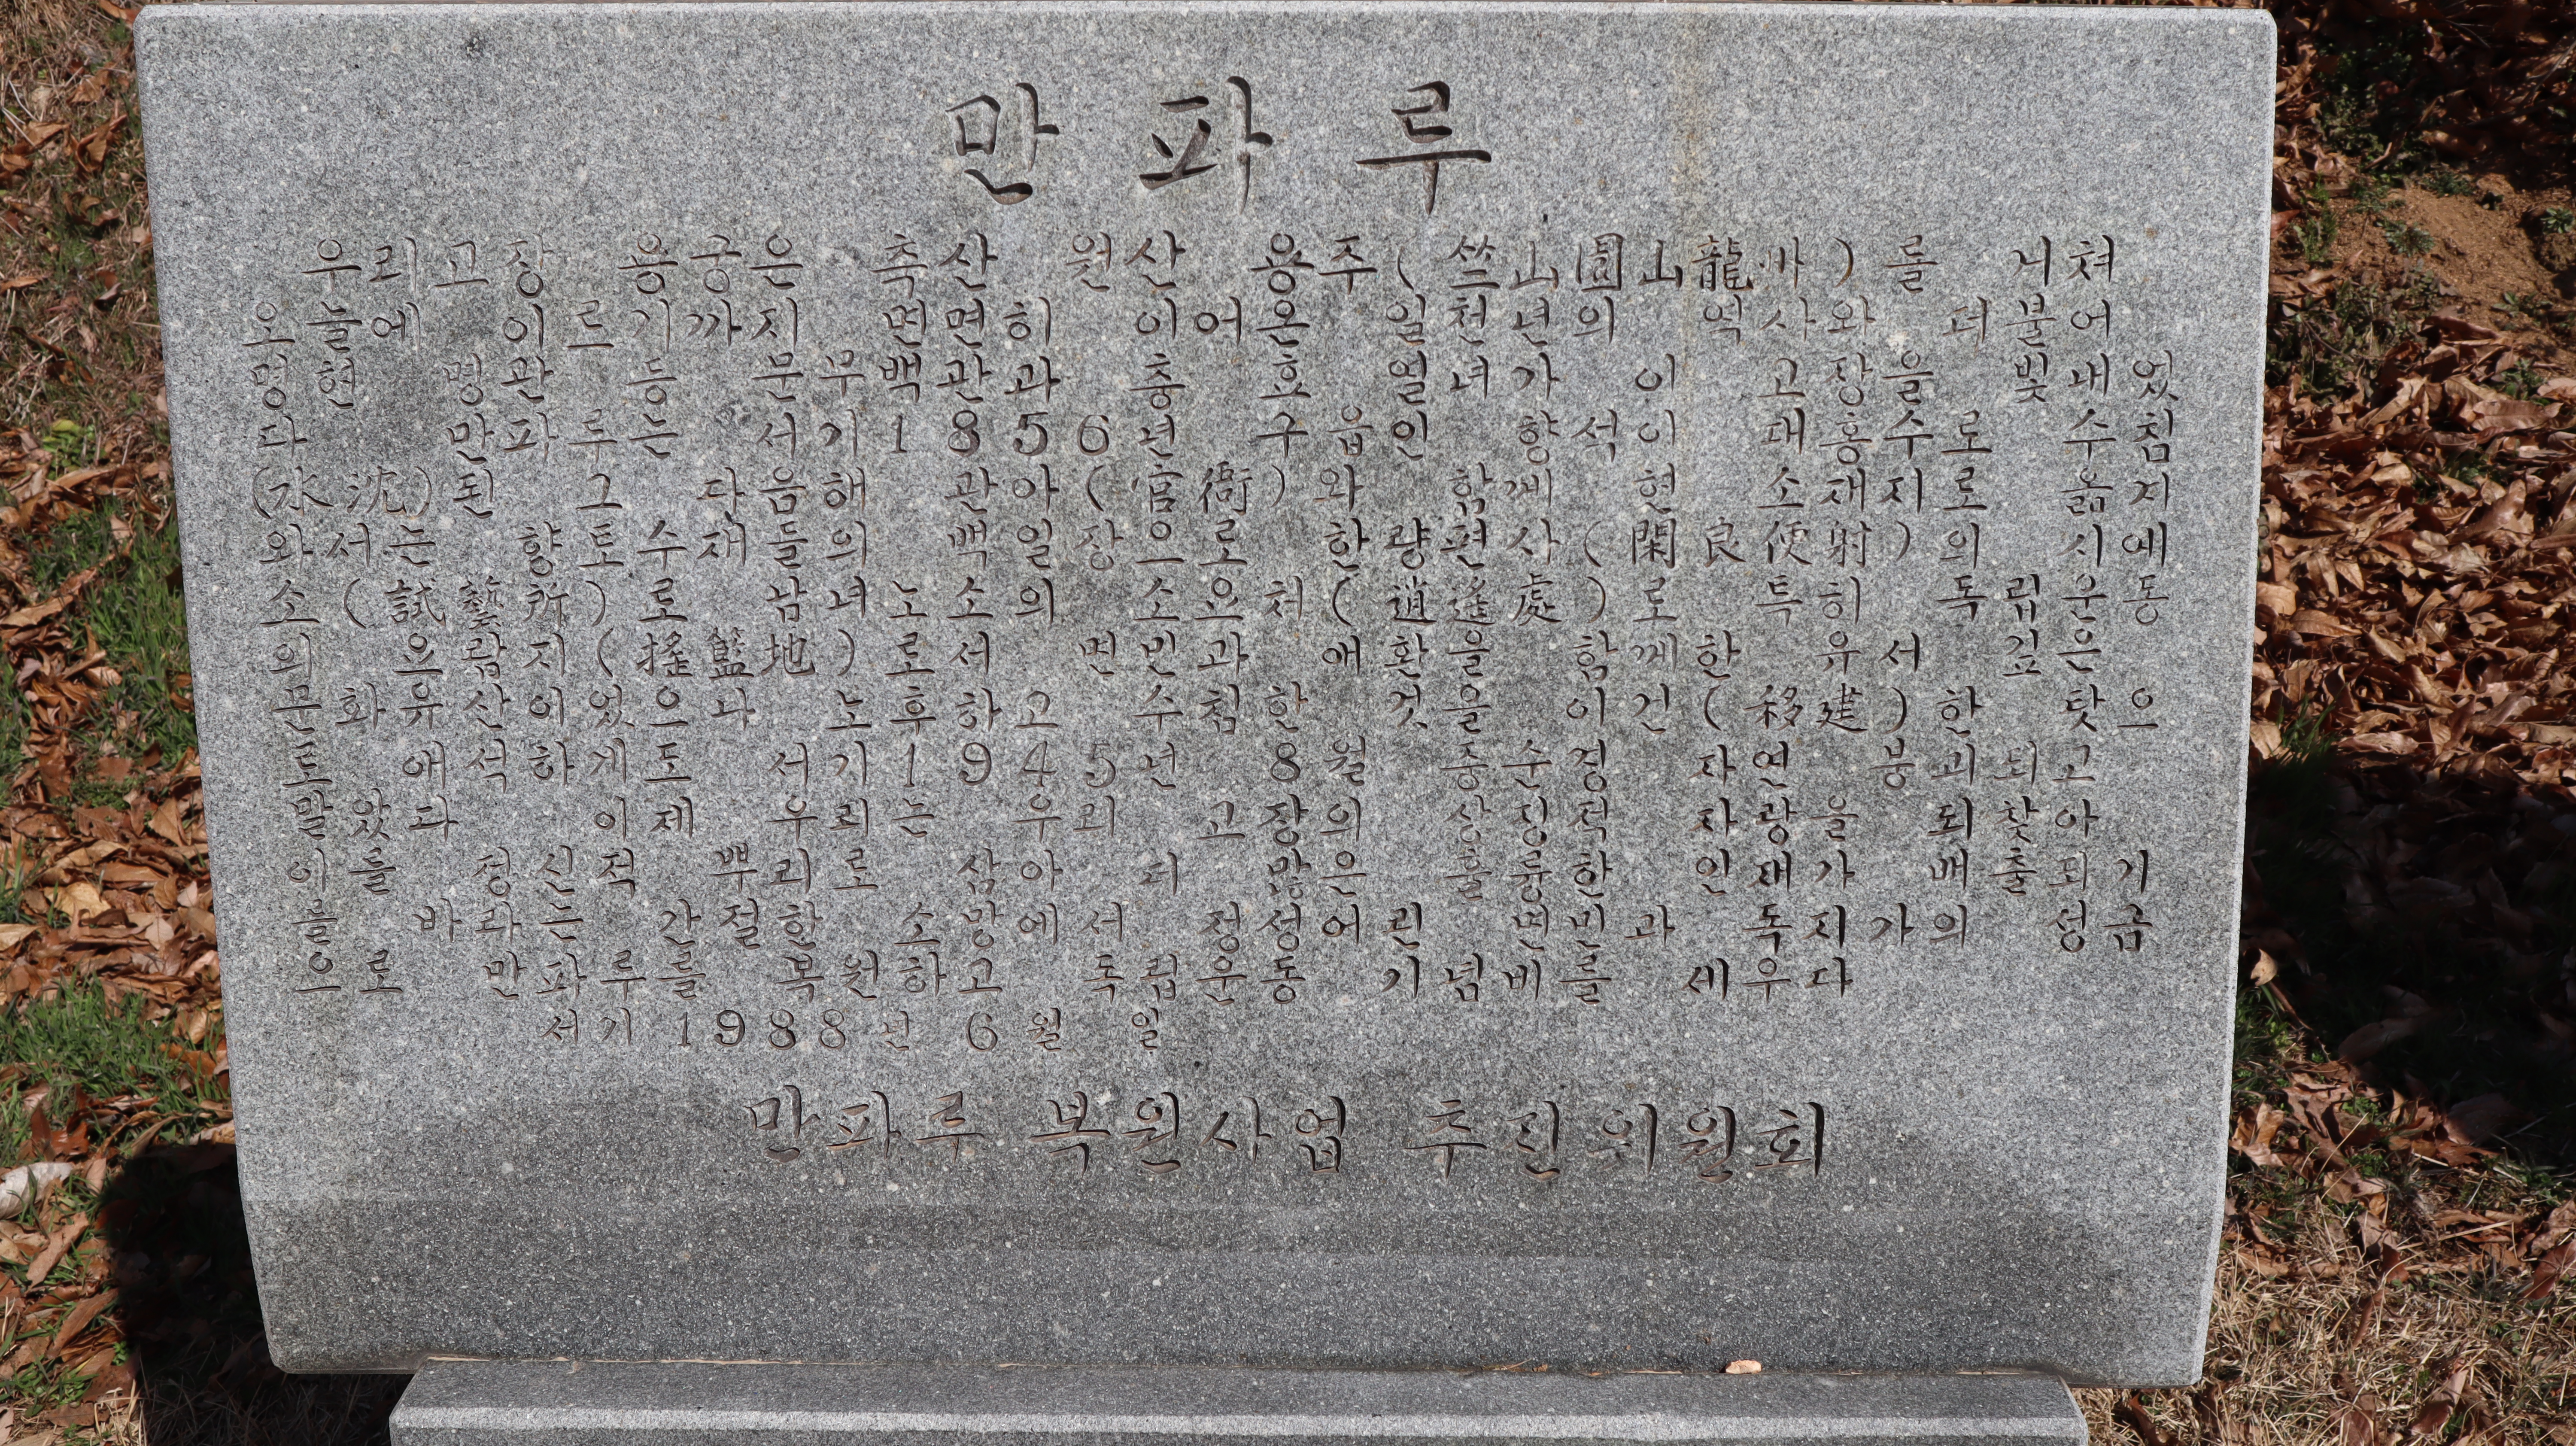 만 파 루
우리 고장 용궁은 축산 원산 용주(竺山圓山龍州)를 거쳐
오늘에 이르기까지 면면히 이어온 일천년의 역사와 더불어
명현 명관 등 문무백관과 충효 열녀가 이 고장을 빛내었
다 만파루는 서기 1856년 구읍인 향석이 대홍수로 수침
(水沈)된 그 다음해 관아(官衙)와 함께 현 소재지로 옮겨
와서는 향토 수재들의 백일장으로 한량편사(閑良便射)의 시예
소(試藝所)로 남녀노소의 소요처(逍遙處)로 특히 독립운동
의 요람지(搖籃地)로서 면민과 애환을 함께한 유서 깊은
문화유산이었으나 노후하고 수침한 것을 이건(移建)한 탓으
로 애석하게도 서기 1945년 8월 중순경 자연 붕괴되고
말았다 이제 우리는 우리 고장의 상징적 자랑을 되찾아
이를 정신적 뿌리로 삼아 더 많은 훌륭한 인재가 배출되기
를 바라는 간절한 소망에서 정성어린 면민과 독지가의 성금
으로 만파루를 복원하고 독립운동 기념비를 세우다
서기 1988년 6월 일
만파루 복원사업 추진위원회